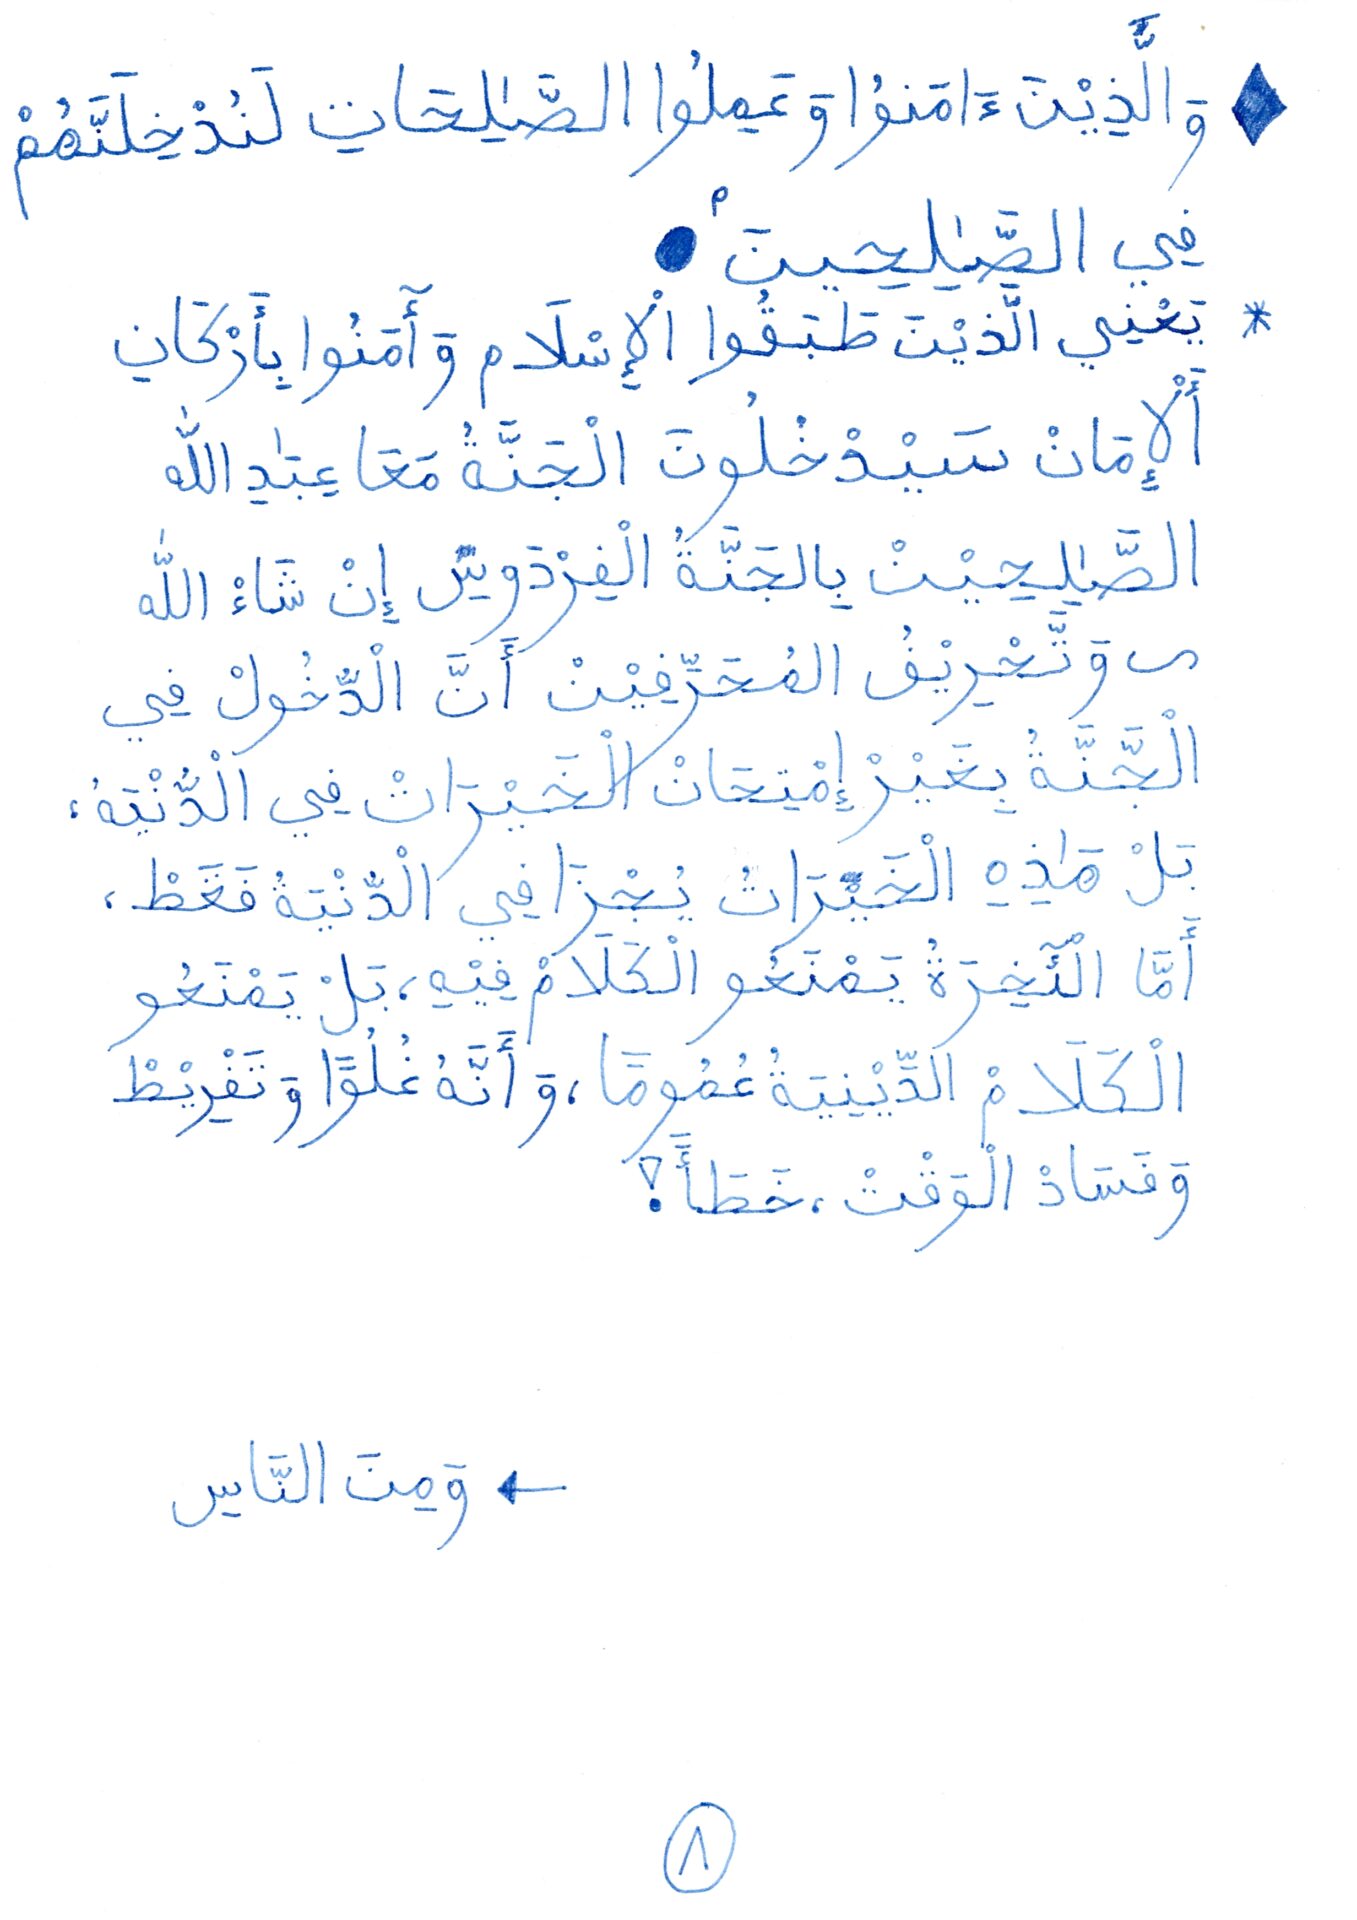 ♦ وَالَّذِيْنَ ءَامَنوُا وَعَمِلُوا الصَّٰلِحَاتِ لَنُدْخِلَنَّهُمْ
فِي الصَّٰلِحِينَ ۢ ●
* يَعْنِي الَّذيْنَ طَبَقُوا اْلإِسْلَام وَأٓمَنُوا بِأَرْكَانِ
أَلْإِمَانْ سَيْدْخُلُونَ الْجَنَّةُ مَعَا عِبَٰدِ اللّٰه
الصَّٰلِحِيْنْ بِالجَنَّةُ الْفِرْدَوسِ إِنْ شَاءْ اللّٰه
س وَتَّحْرِيْفُ المُحَرِّفِيْنْ أَنَّ الْدُّخُولْ فِي
الْجَّنَّةُ بِغَيْرْ إِمْتِحَانْ الْخَيْرَاتْ فِي الْدُّنْيَةُ،
بَلْ هَٰذِهِ الْخَيْرَاتُ يُجْزَا فِي الْدُّنْيَةُ فَقَطْ،
أَمَّا الْأٓخِرَةُ يَمْنَعُو الْكَلَامْ فِيْهِ، بَلْ يَمْنَعُو
الْكَلَامْ الدِّيْنِيَةُ عُمُومًا، وَأَنَّهُ غُلُوًّا وَتَفْرِيْطْ
وَفَسَادْ الْوَقْتْ، خَطَأً!
← وَمِنَ النَّاسِ
٨